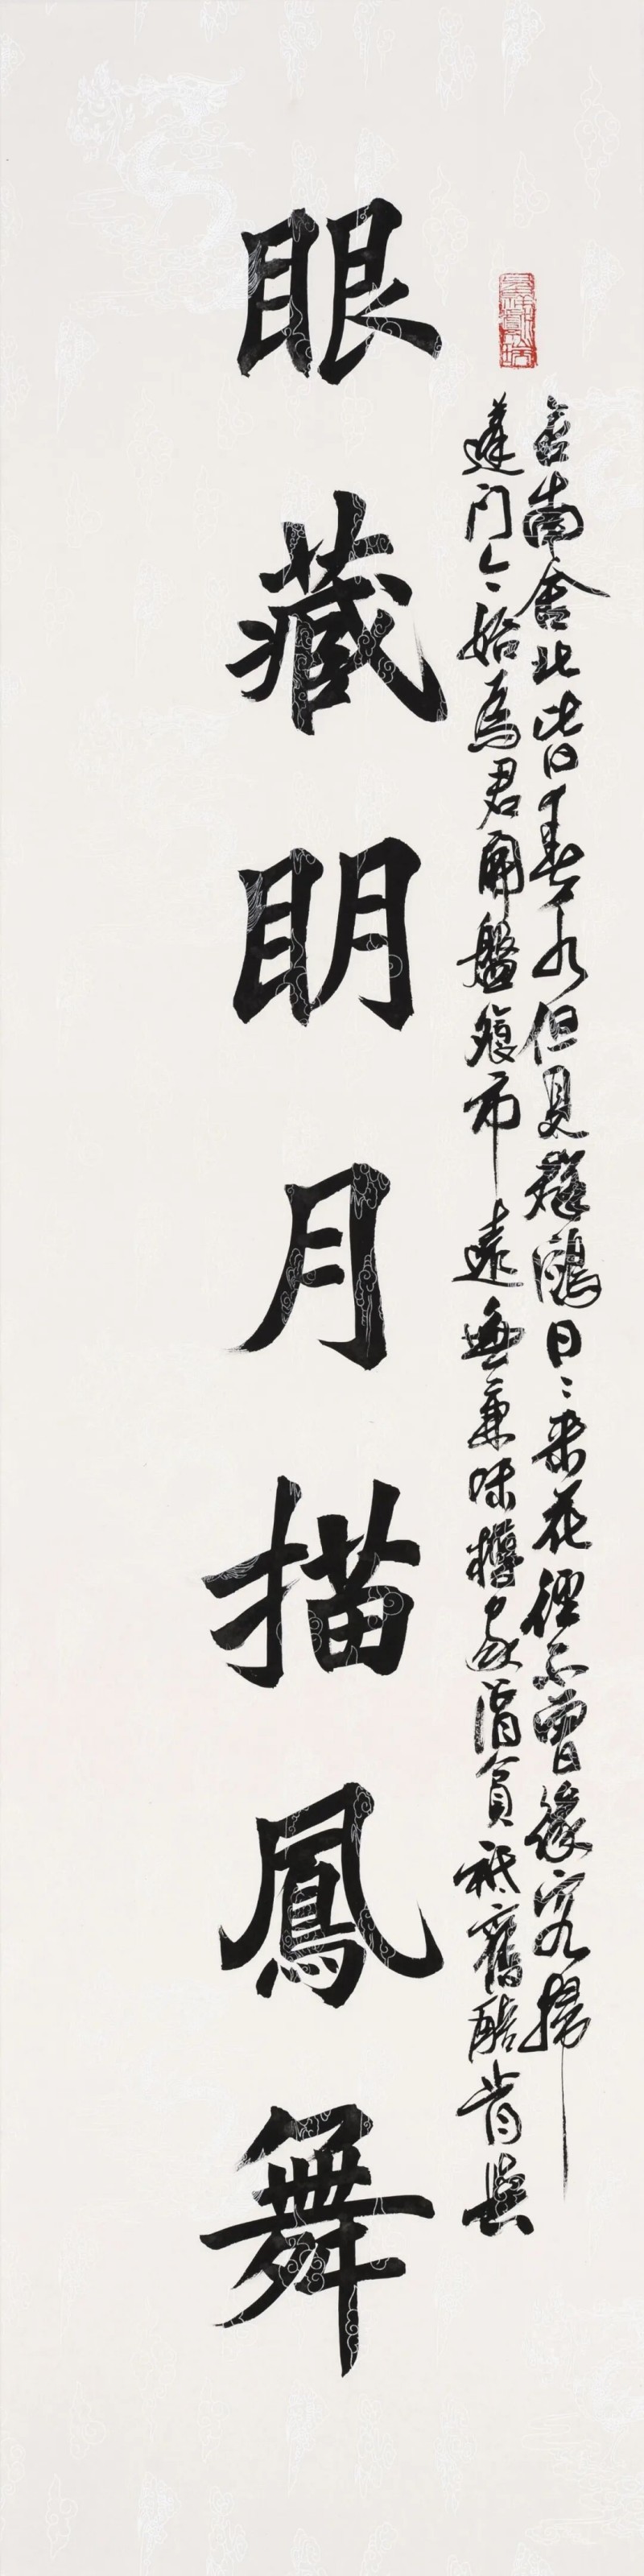 舍南舍北皆春水但見群鷗日日来花徑不曾緣客掃
蓬门今始為君開盤飧市遠無兼味樽家酒貧祗舊醅肯與
眼藏明月描鳳舞